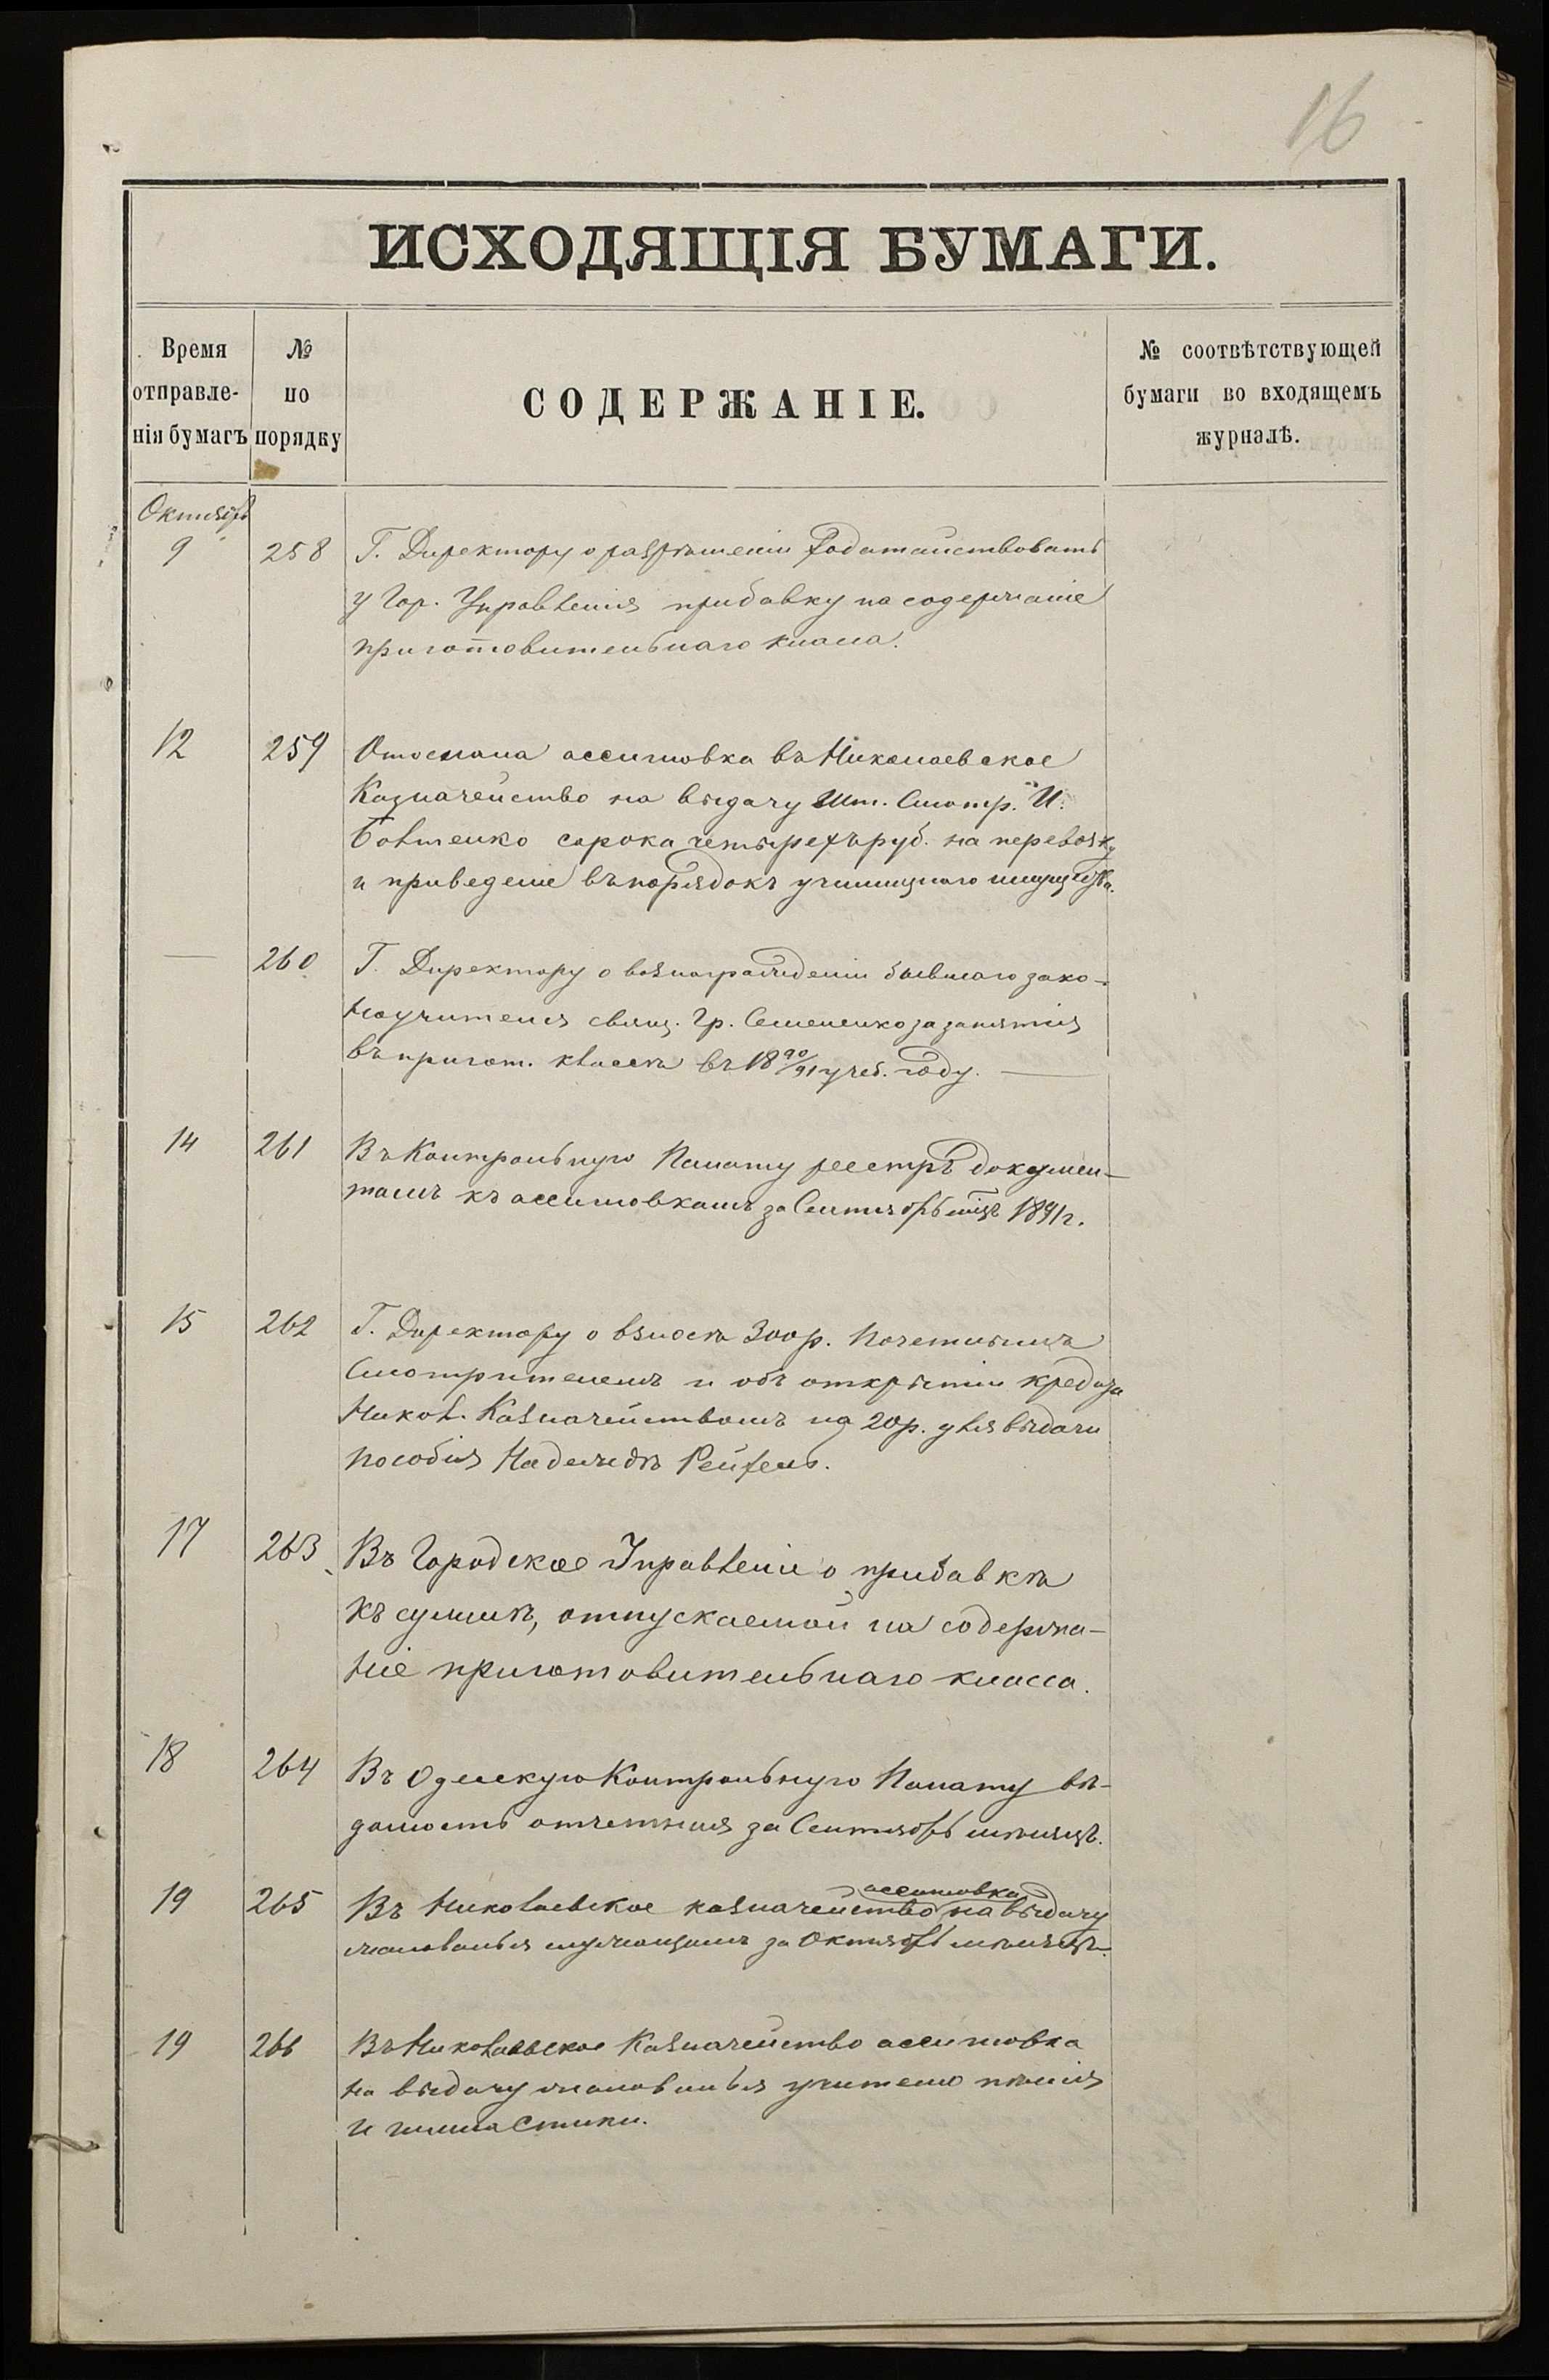 16
ИСХОДЯЩІЯ БУМАГИ.
Время отправле- нія бумагъ
№ по порядку
СОДЕРЖАНІЕ.
№ соотвѣтствующей бумаги во входящемъ журналѣ.
Октябрь
9 258 Г. Директору о разрѣшеніи ходатайствовать
у Гор. Управленія прибавку на содержаніе
приготовительнаго класса.
12 259 Отослана ассигновка въ Николаевское
Казначейство на выдачу Шт. Смотр. И.
Бовтенко сорока четырехъ руб. на перевозку
и приведеніе въ порядокъ училищнаго имущества.
— 260 Г. Директору о вознагражденіи бывшаго зако-
ноучителя свящ. Гр. Семененко за занятія
въ пригот. классѣ въ 18 90/91 учеб. году. —
14 261 Въ Контрольную Палату реестръ докумен-
тамъ къ ассигновкамъ за Сентябрь мцъ 1891 г.
15 262 Г. Директору о взносѣ 300 р. Почетнымъ
Смотрителемъ и объ открытіи кредита
Никол. Казначействомъ на 20 р. для выдачи
пособія Надеждѣ Рейхель.
17 263 Въ Городское Управленіе о прибавкѣ
къ суммѣ, отпускаемой на содержа-
ніе приготовительнаго класса.
18 264 Въ Одесскую Контрольную Палату вѣ-
домость отчетныя за Сентябрь мѣсяцъ.
ассигновка
19 265 Въ Николаевское казначейство на выдачу
жалованья служащимъ за Октябрь мѣсяцъ.
19 266 Въ Николаевское Казначейство ассигновка
на выдачу жалованья учителю пѣнія
и гимнастики.